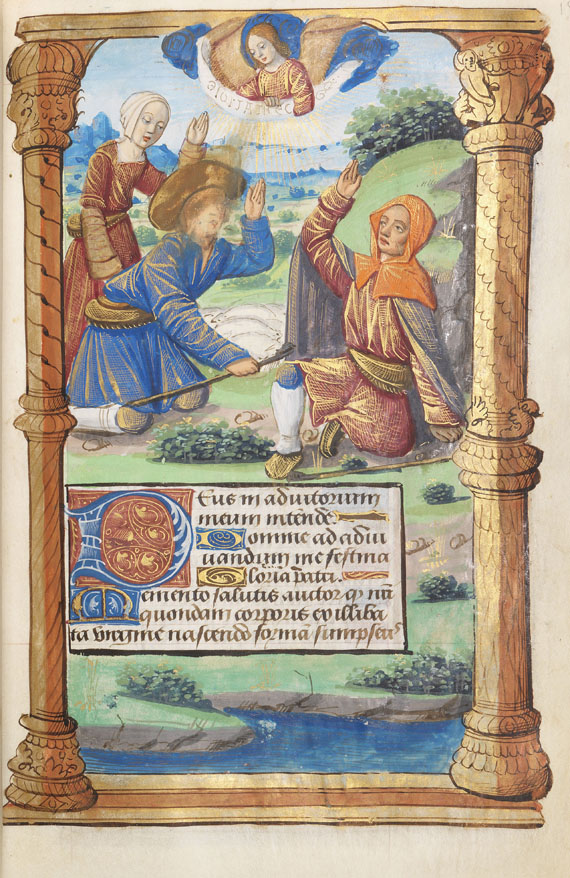 Gloria in exc
Deus in adiutorium
meum intende.
Domine ad adiu
uandum me festina
Gloria patri.
Memento salutis auctor qꝫ nr̃i
quondam corporis ex illiba
ta virgine nascendo formã sumpseris